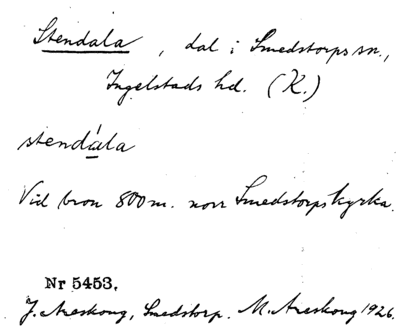 Stendala, dal i Smedstorps sn.,
Ingelstads hd. (K.)
stendála
Vid bron 800 m. norr Smedstorps kyrka.
Nr 5453.
J. Areskoug, Smedstorp. M. Areskoug 1926.